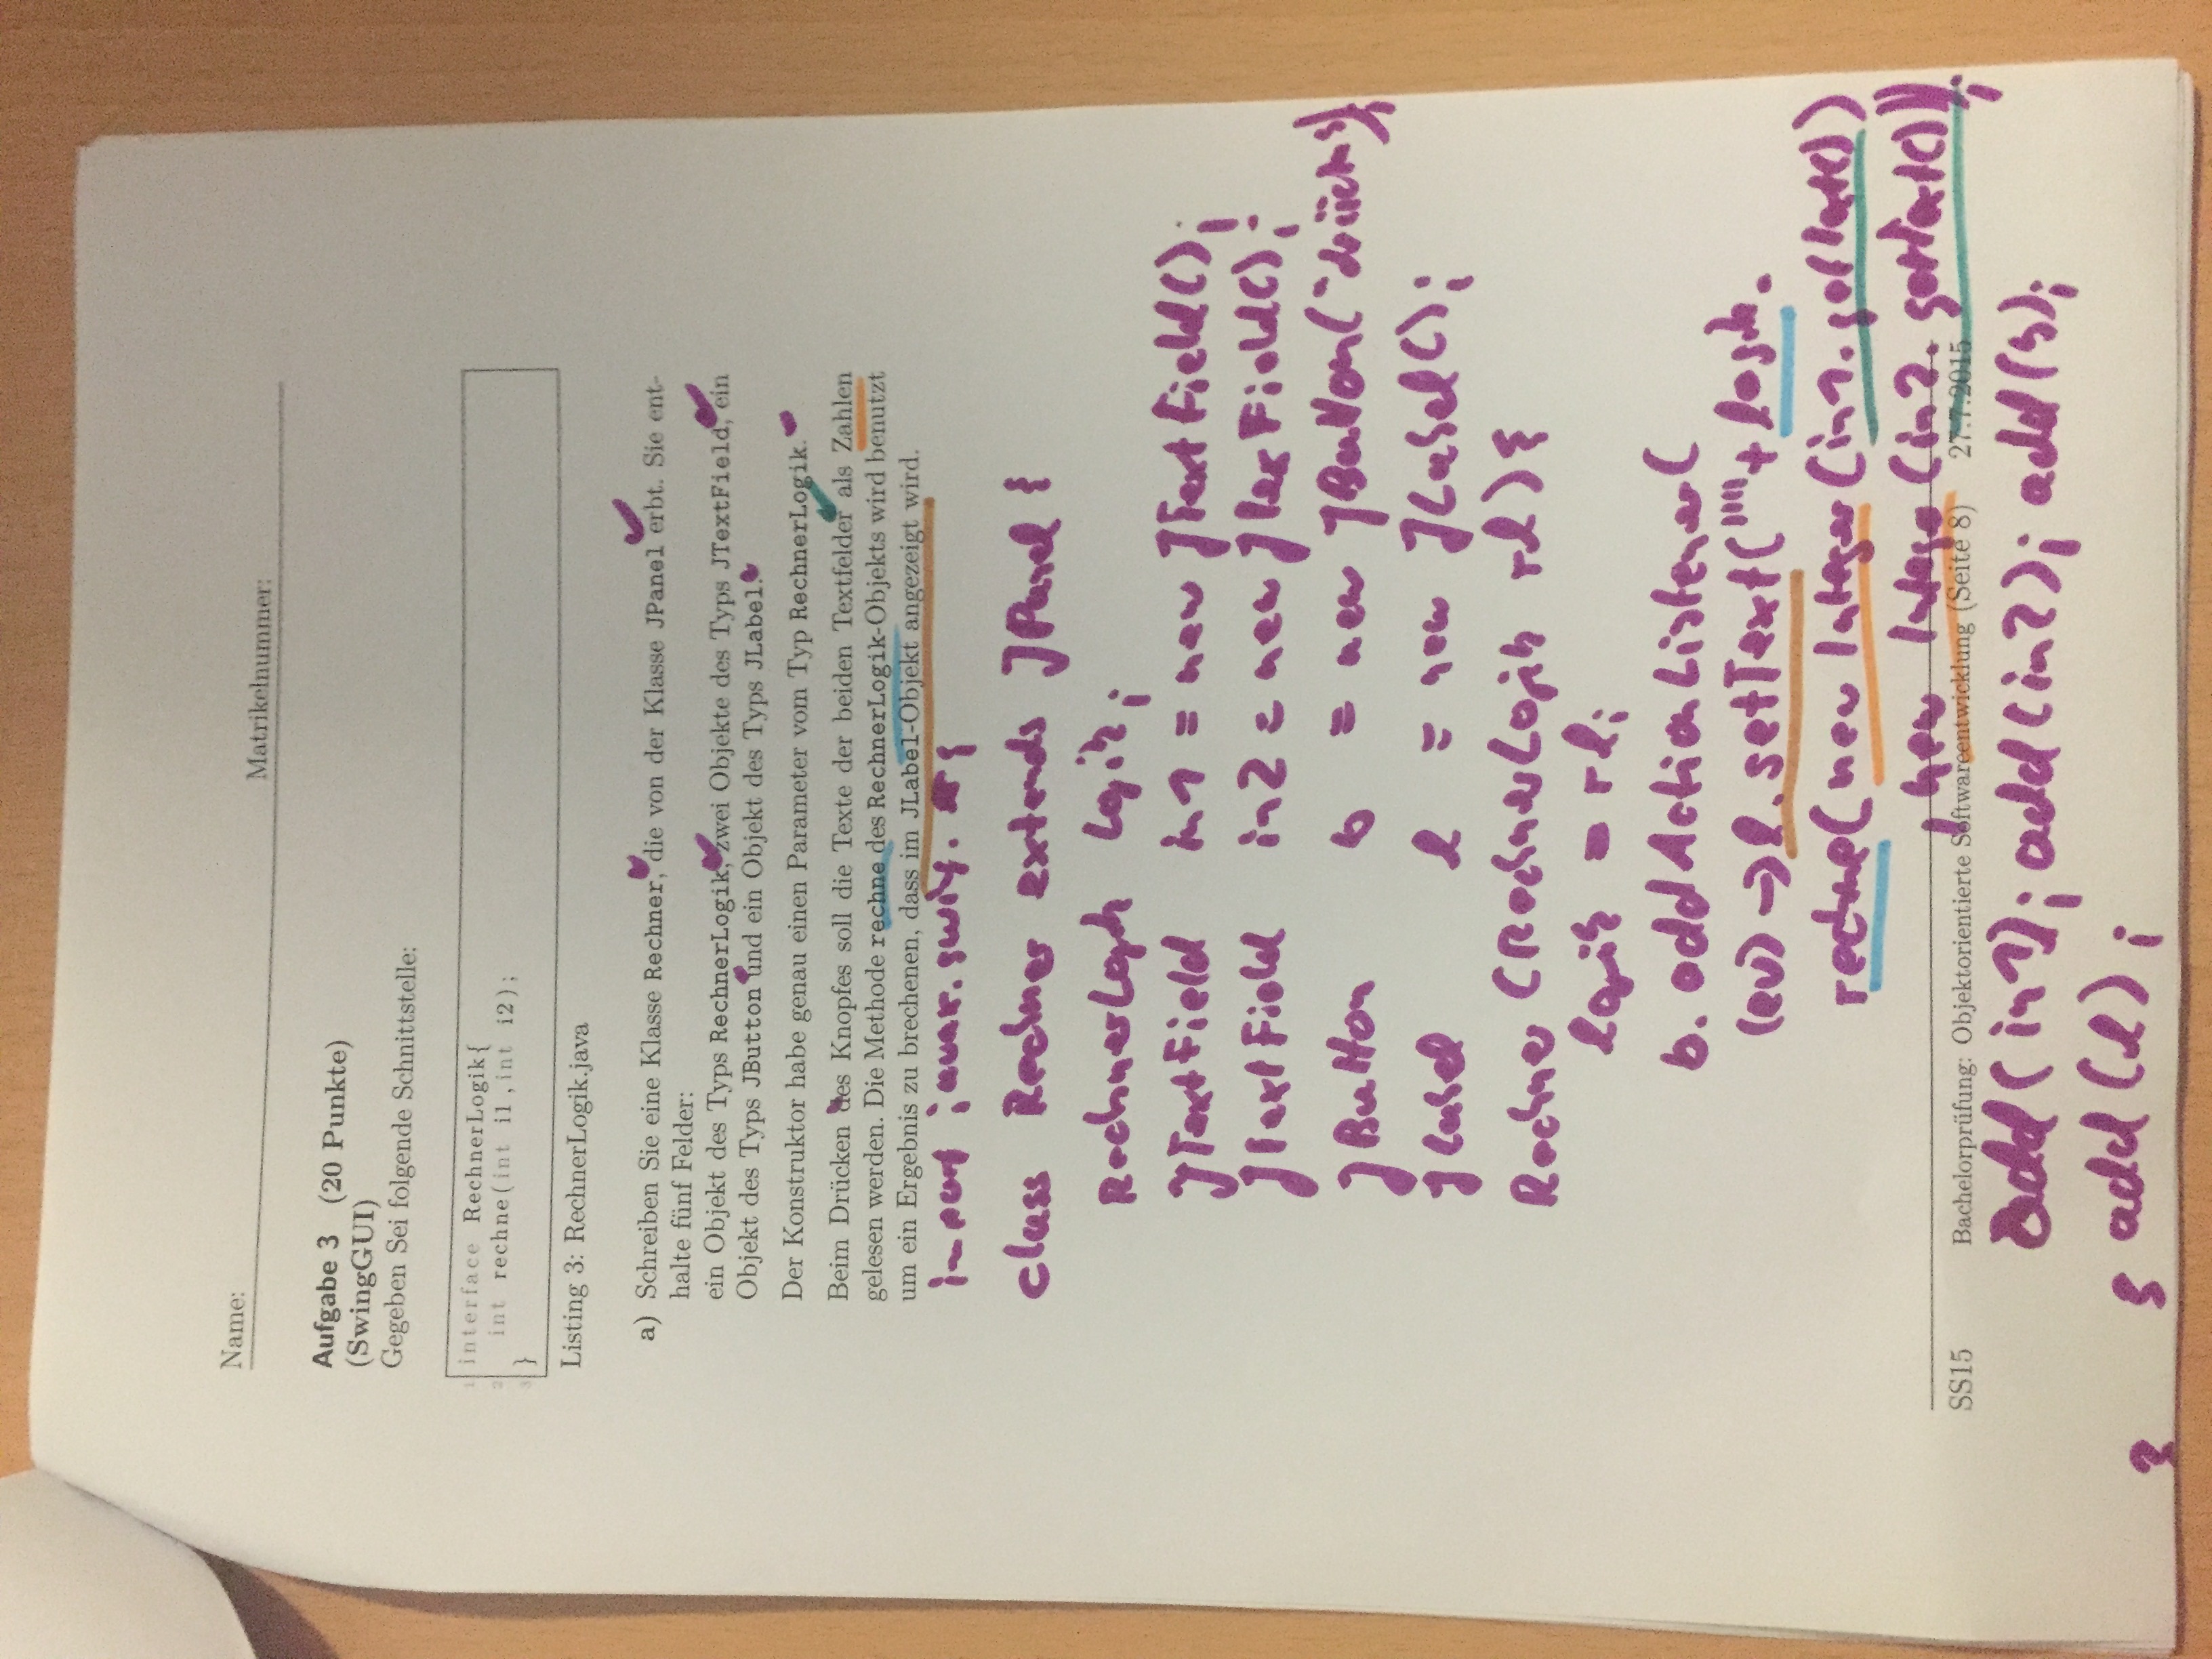 Name:
Matrikelnummer:
Aufgabe 3 (20 Punkte)
(SwingGUI)
Gegeben Sei folgende Schnittstelle:
1 interface RechnerLogik{
2 int rechne(int i1,int i2);
3 }
Listing 3: RechnerLogik.java
a) Schreiben Sie eine Klasse Rechner, die von der Klasse JPanel erbt. Sie ent-
halte fünf Felder:
ein Objekt des Typs RechnerLogik, zwei Objekte des Typs JTextField, ein
Objekt des Typs JButton und ein Objekt des Typs JLabel.
Der Konstruktor habe genau einen Parameter vom Typ RechnerLogik.
Beim Drücken des Knopfes soll die Texte der beiden Textfelder als Zahlen
gelesen werden. Die Methode rechne des RechnerLogik-Objekts wird benutzt
um ein Ergebnis zu brechenen, dass im JLabel-Objekt angezeigt wird.
import javax.swing.*;
class Rechner extends JPanel {
RechnerLogik logik;
JTextField in1 = new JTextField();
JTextField in2 = new JTextField();
JButton b = new JButton("drück");
JLabel l = new JLabel();
Rechner (RechnerLogik rl){
logik = rl;
b.addActionListener(
(ev) -> l.setText(""+logik.
rechne(new Integer(in1.getText())
, new Integer(in2.getText())));
SS15 Bachelorprüfung: Objektorientierte Softwareentwicklung (Seite 8) 27.7.2015
add(in1); add(in2); add(b);
} add(l);
}